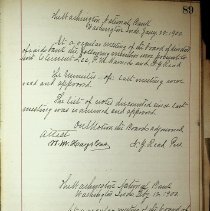 89
The Washington National Bank
Washington Ind. Jany 22. 1902
At a regular meeting of the Board of directors
of said bank the following members were present to
wit
The Minutes of last meeting were
read and approved.
The list of notes discounted since last
meeting was examined and approved.
On Motion the Board adjourned
Attest
N. G. Read Pres.
The Washington National Bank
Washington Ind.
At a regular meeting of the Board of